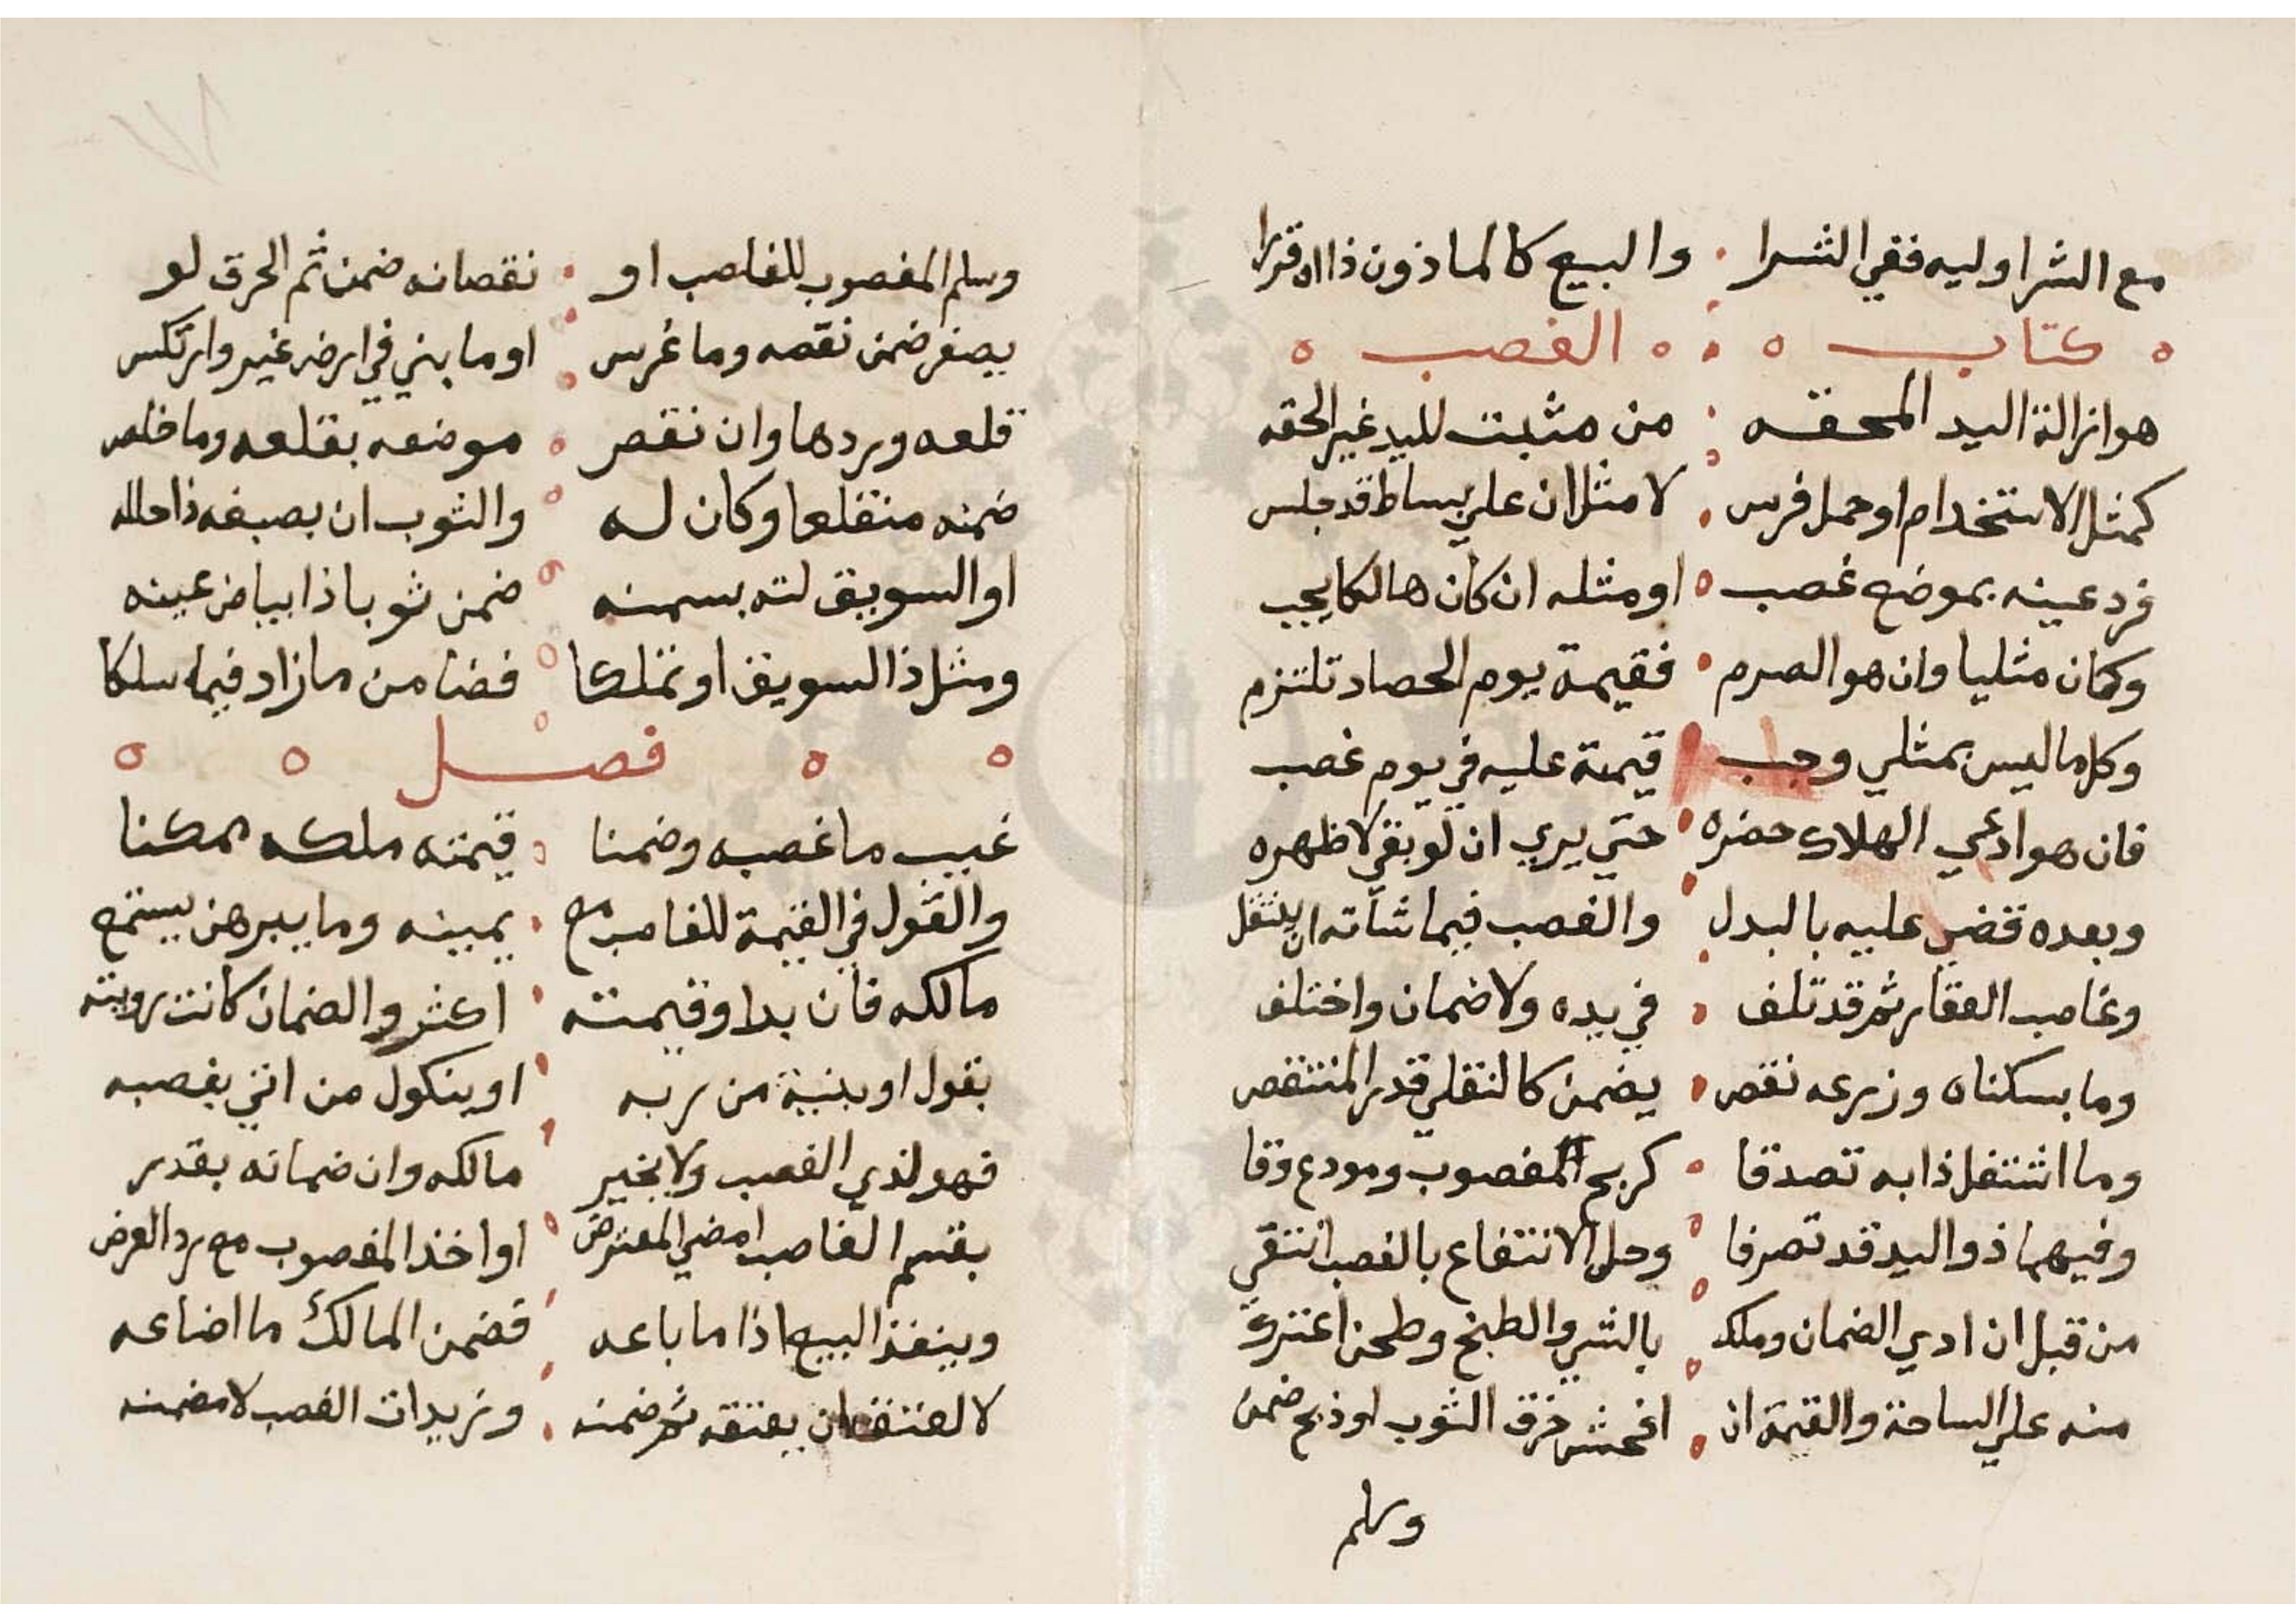 مع الشرا وليه ففي الشرا والبيع كالماذون ذا اه قررا
كتاب الغصب
هو ازالة اليد المحقه من مثبت لليد غير الحقه
كمثل الاستخدام او حمل فرس لا مثل ان علي بساط قد جلس
فرد عينه بموضع غصب او مثله ان كان هالكا يجب
وكان مثليا وان هو الصرم فقيمة يوم الحصاد تلتزم
وكل ما ليس بمثلي وجب قيمة عليه في يوم غصب
فان هو ادعي الهلاك حضره حتي يري ان لو بقي لا ظهره
وبعده قضي عليه بالبدل والغصب فيما شأنه ان ينتقل
وغاصب العقار ثم قد تلف في يده ولا ضمان واختلف
وما بسكناه وزرعه نقص يضمن كالنقلي قدر المنتقص
وما اشتغل ذا به تصدقا كربح المغصوب ومودع وقا
وفيهما ذو اليد قد تصرفا وحل الانتفاع بالغصب انتقي
من قبل ان ادي الضمان وملك بالشي والطبخ وطحن اعترك
منه علي الساحة والقيمة ان افحش خرق الثوب او ذبح ضمن
وسلم
وسلم المغصوب للغاصب او نقصانه ضمن ثم الحرق لو
يصغر ضمن نقصه وما غرس او ما بني في ارض غير وارتكس
قلعه وردها وان نقص موضعه بقلعه وما خلص
ضمنه منقلعا وكان له والثوب ان بصبغه ذا حلله
او السويق لته بسمنه ضمن ثوبا ذا بياض عينه
ومثل ذا السويق او تملكا فضنا من ما زاد فيما سلكا
فصل
غيب ما غصبه وضمنا قيمته ملكه ممكنا
والقول في القيمة للغاصب مع يمينه وما يبرهن يستمع
مالكه فان بدا وقيمته اكثر والضمان كانت رويته
بقول او بنية من ربه او ينكول من اتي بغصبه
فهو لذي الغصب ولا يخير مالكه وان ضمانه بقدر
بقسم الغاصب امضي المعترض او اخذ المغصوب مع رد العرض
وينفذ البيع اذا ما باعه فضمن المالك ما اضاعه
لا العتق ان يعتقه ثم ضمنه وزيدات الغصب لا مضمنه